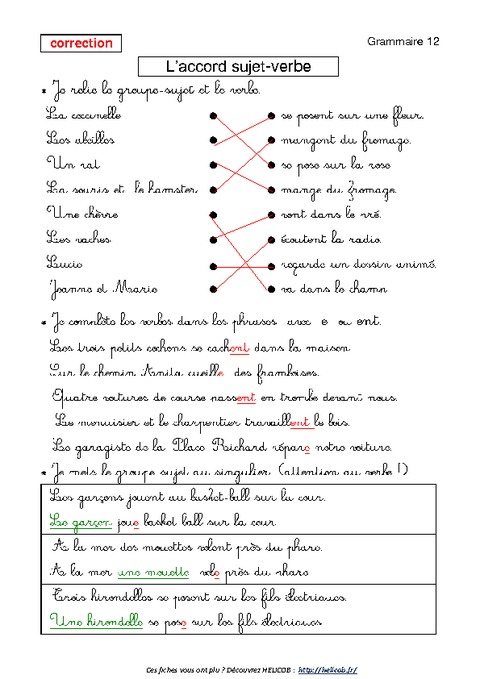 correction
Grammaire 12
L'accord sujet-verbe
* Je relie le groupe-sujet et le verbe.
La coccinelle se posent sur une fleur.
Les abeilles mangent du fromage.
Un rat se pose sur la rose
La souris et le hamster mange du fromage.
Une chèvre vont dans le pré.
Les vaches écoutent la radio.
Lucie regarde un dessin animé.
Jeanne et Marie va dans le champ
* Je complète les verbes dans les phrases avec e ou ent.
Les trois petits cochons se cachent dans la maison
Sur le chemin Anita cueille des framboises.
Quatre voitures de course passent en trombe devant nous.
Le menuisier et le charpentier travaillent le bois.
Le garagiste de la Place Reichard répare notre voiture.
* Je mets le groupe sujet au singulier (attention au verbe !)
Les garçons jouent au basket-ball sur la cour.
Le garçon joue basket ball sur la cour
A la mer des mouettes volent près du phare.
A la mer une mouette vole près du phare
Trois hirondelles se posent sur les fils électriques.
Une hirondelle se pose sur les fils électriques
Ces fiches vous ont plu ? Découvrez HELICOB : http://helicob.fr/